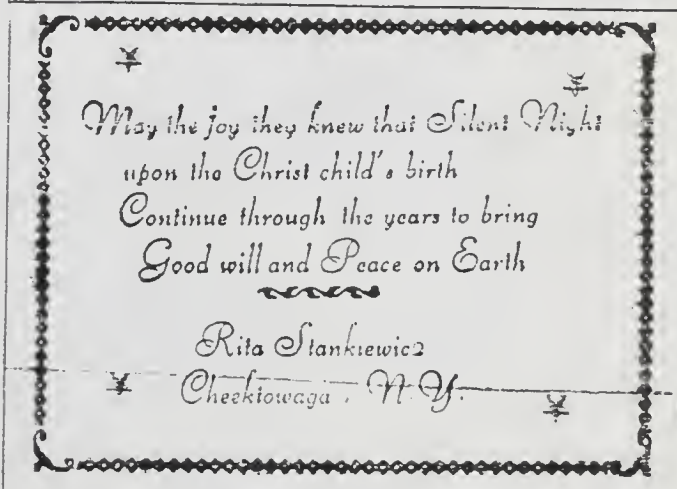 May the joy they knew that Silent Night
upon the Christ child's birth
Continue through the years to bring
Good will and Peace on Earth
Rita Stankiewicz
Cheektowaga, N.Y.